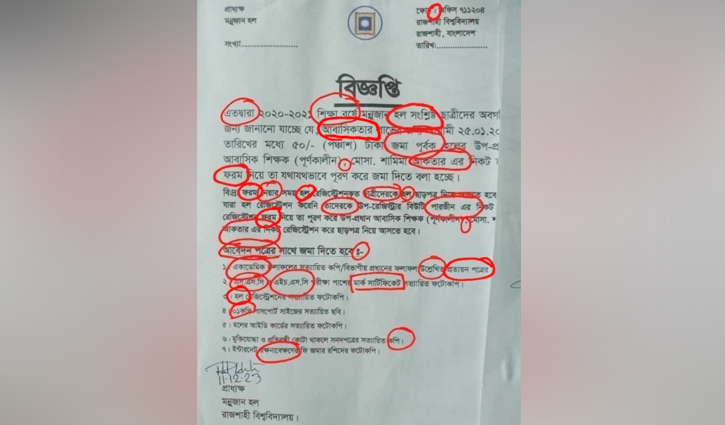 প্রাধ্যক্ষ
মন্নুজান হল
ফোন : অফিস ৭১১২০৪
রাজশাহী বিশ্ববিদ্যালয়
রাজশাহী, বাংলাদেশ
সংখ্যা.......................
তারিখ:.....................
বিজ্ঞপ্তি
এতদ্বারা ২০২০-২০২১ শিক্ষা বর্ষে মন্নুজান হল সংশ্লিষ্ট ছাত্রীদের অবগ
জন্য জানানো যাচ্ছে যে, আবাসিকতার ২৫.০১.২০
তারিখের মধ্যে ৫০/- (পঞ্চাশ) টাকা জমা পূর্বক হলের উপ-প্র
আবাসিক শিক্ষক (পূর্ণকালীন), মোসা. শামিমা আকতার এর নিকট
ফরম নিয়ে তা যথাযথভাবে পূরণ করে জমা দিতে বলা হচ্ছে।
বিদ্রঃ ফরম নেয়ার সময় হল রেজিস্ট্রেশনকৃত ছাত্রীদেরকে হল ছাড়পত্র নিয়ে আসতে হবে
যারা হল রেজিস্ট্রেশন করেনি তাদেরকে উপ-রেজিস্ট্রার বিউটি পারভীন এর নিকট
রেজিস্ট্রেশন ফরম নিয়ে তা পূরণ করে উপ-প্রধান আবাসিক শিক্ষক (পূর্ণকালীন) মোসা.
আকতার এর নিকট রেজিস্ট্রেশন করে ছাড়পত্র নিয়ে আসতে হবে।
আবেদন পত্রের সাথে জমা দিতে হবে :-
১। একাডেমিক ফলাফলের সত্যায়িত কপি/বিভাগীয় প্রধানের ফলাফল উল্লেখিত প্রত্যয়ন পত্রের
২। এস.এস.সি, এইচ.এস.সি পরীক্ষা পাশের মার্ক সার্টিফিকেট সত্যায়িত ফটোকপি।
৩। হল রেজিস্ট্রেশনের সত্যায়িত ফটোকপি।
৪। ০১কপি পাসপোর্ট সাইজের সত্যায়িত ছবি।
৫। হলের আইডি কার্ডের সত্যায়িত ফটোকপি।
৬। মুক্তিযোদ্ধা ও প্রতিবন্ধী কোটা থাকলে সনদপত্রের সত্যায়িত কপি।
৭। ইন্টারনেট রক্ষনাবেক্ষণের ফি জমার রশিদের ফটোকপি।
11-12-23
প্রাধ্যক্ষ
মন্নুজান হল
রাজশাহী বিশ্ববিদ্যালয়।